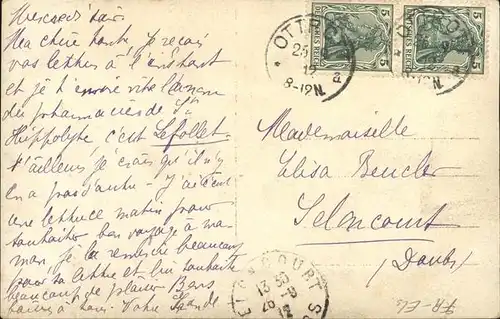 Mercredi soir
Ma chère tante, je reçois
vos lettres à l'instant
et je t'envoie vite l'adresse
du pharmacien de St
Hippolyte c'est Lafollet.
d'ailleurs je crois qu'il n'y
en a pas d'autre - J'ai écrit
une lettre ce matin pour
souhaiter bon voyage à ma-
man, je la remercie beaucoup
pour sa lettre et lui souhaite
beaucoup de plaisir Bons
baisers à tous. Votre
OTTR
25
12
8-12N.
DEUTSCHES REICH
5
5
Mademoiselle
Elisa Beucler
Seloncourt
(Doubs)
COURT
13 30
26 -9
12
FR-EL